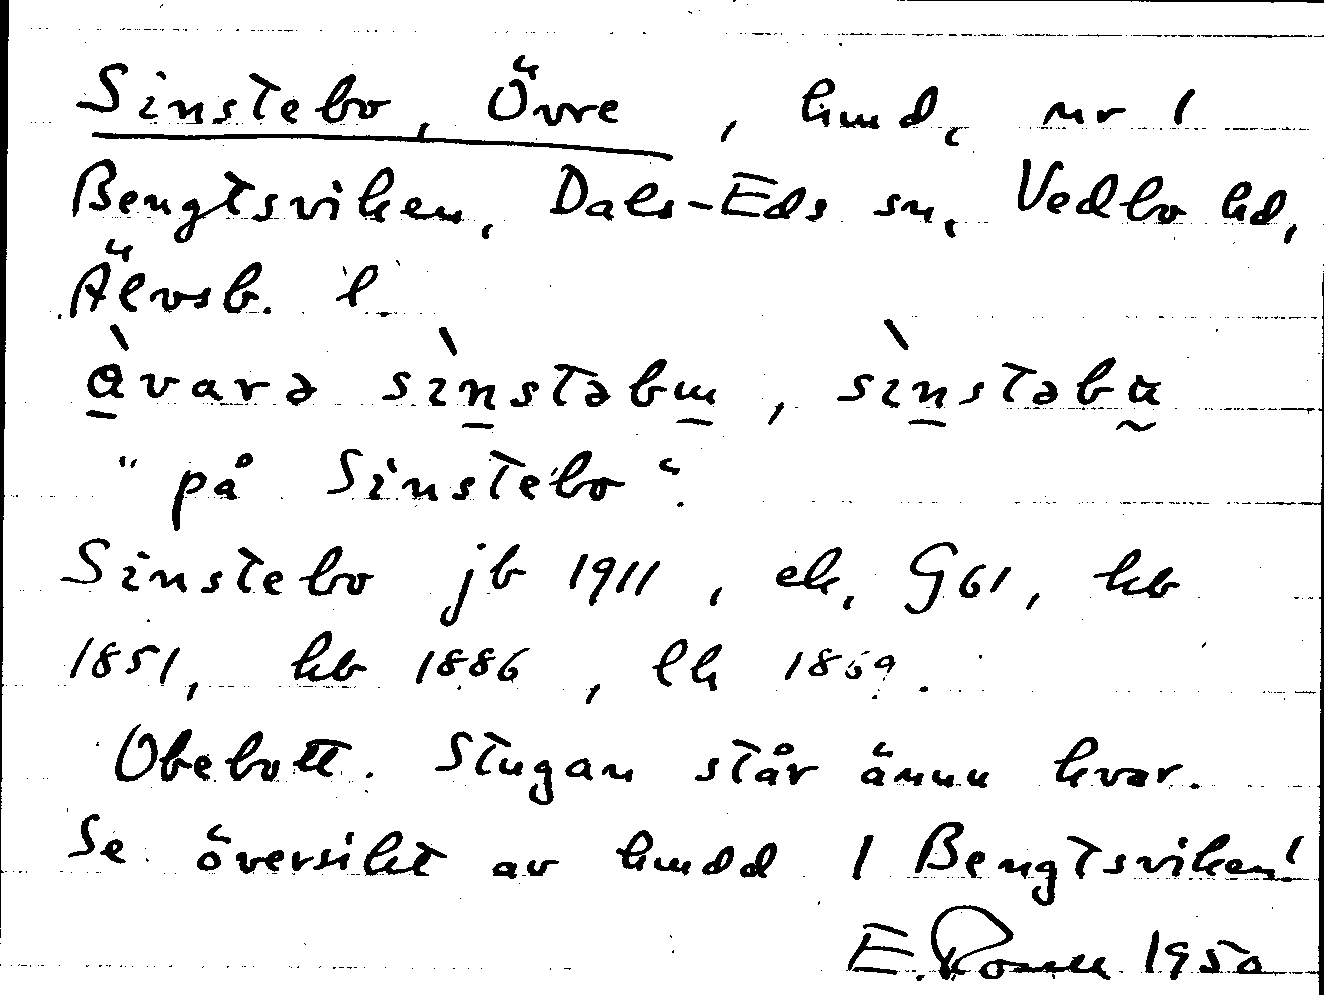 Sinstebo, Övre, hmd, nr 1
Bengtsviken, Dals-Eds sn, Vedbo hd,
Älvsb. l
àvarə sìnstəbɯ, sìnstəbu
"på Sinstebo".
Sinstebo jb 1911, ek, G61, hb
1851, hb 1886, lh 1869.
Obebott. Stugan står ännu kvar.
Se översikt av hmdd 1 Bengtsviken!
E. 1950